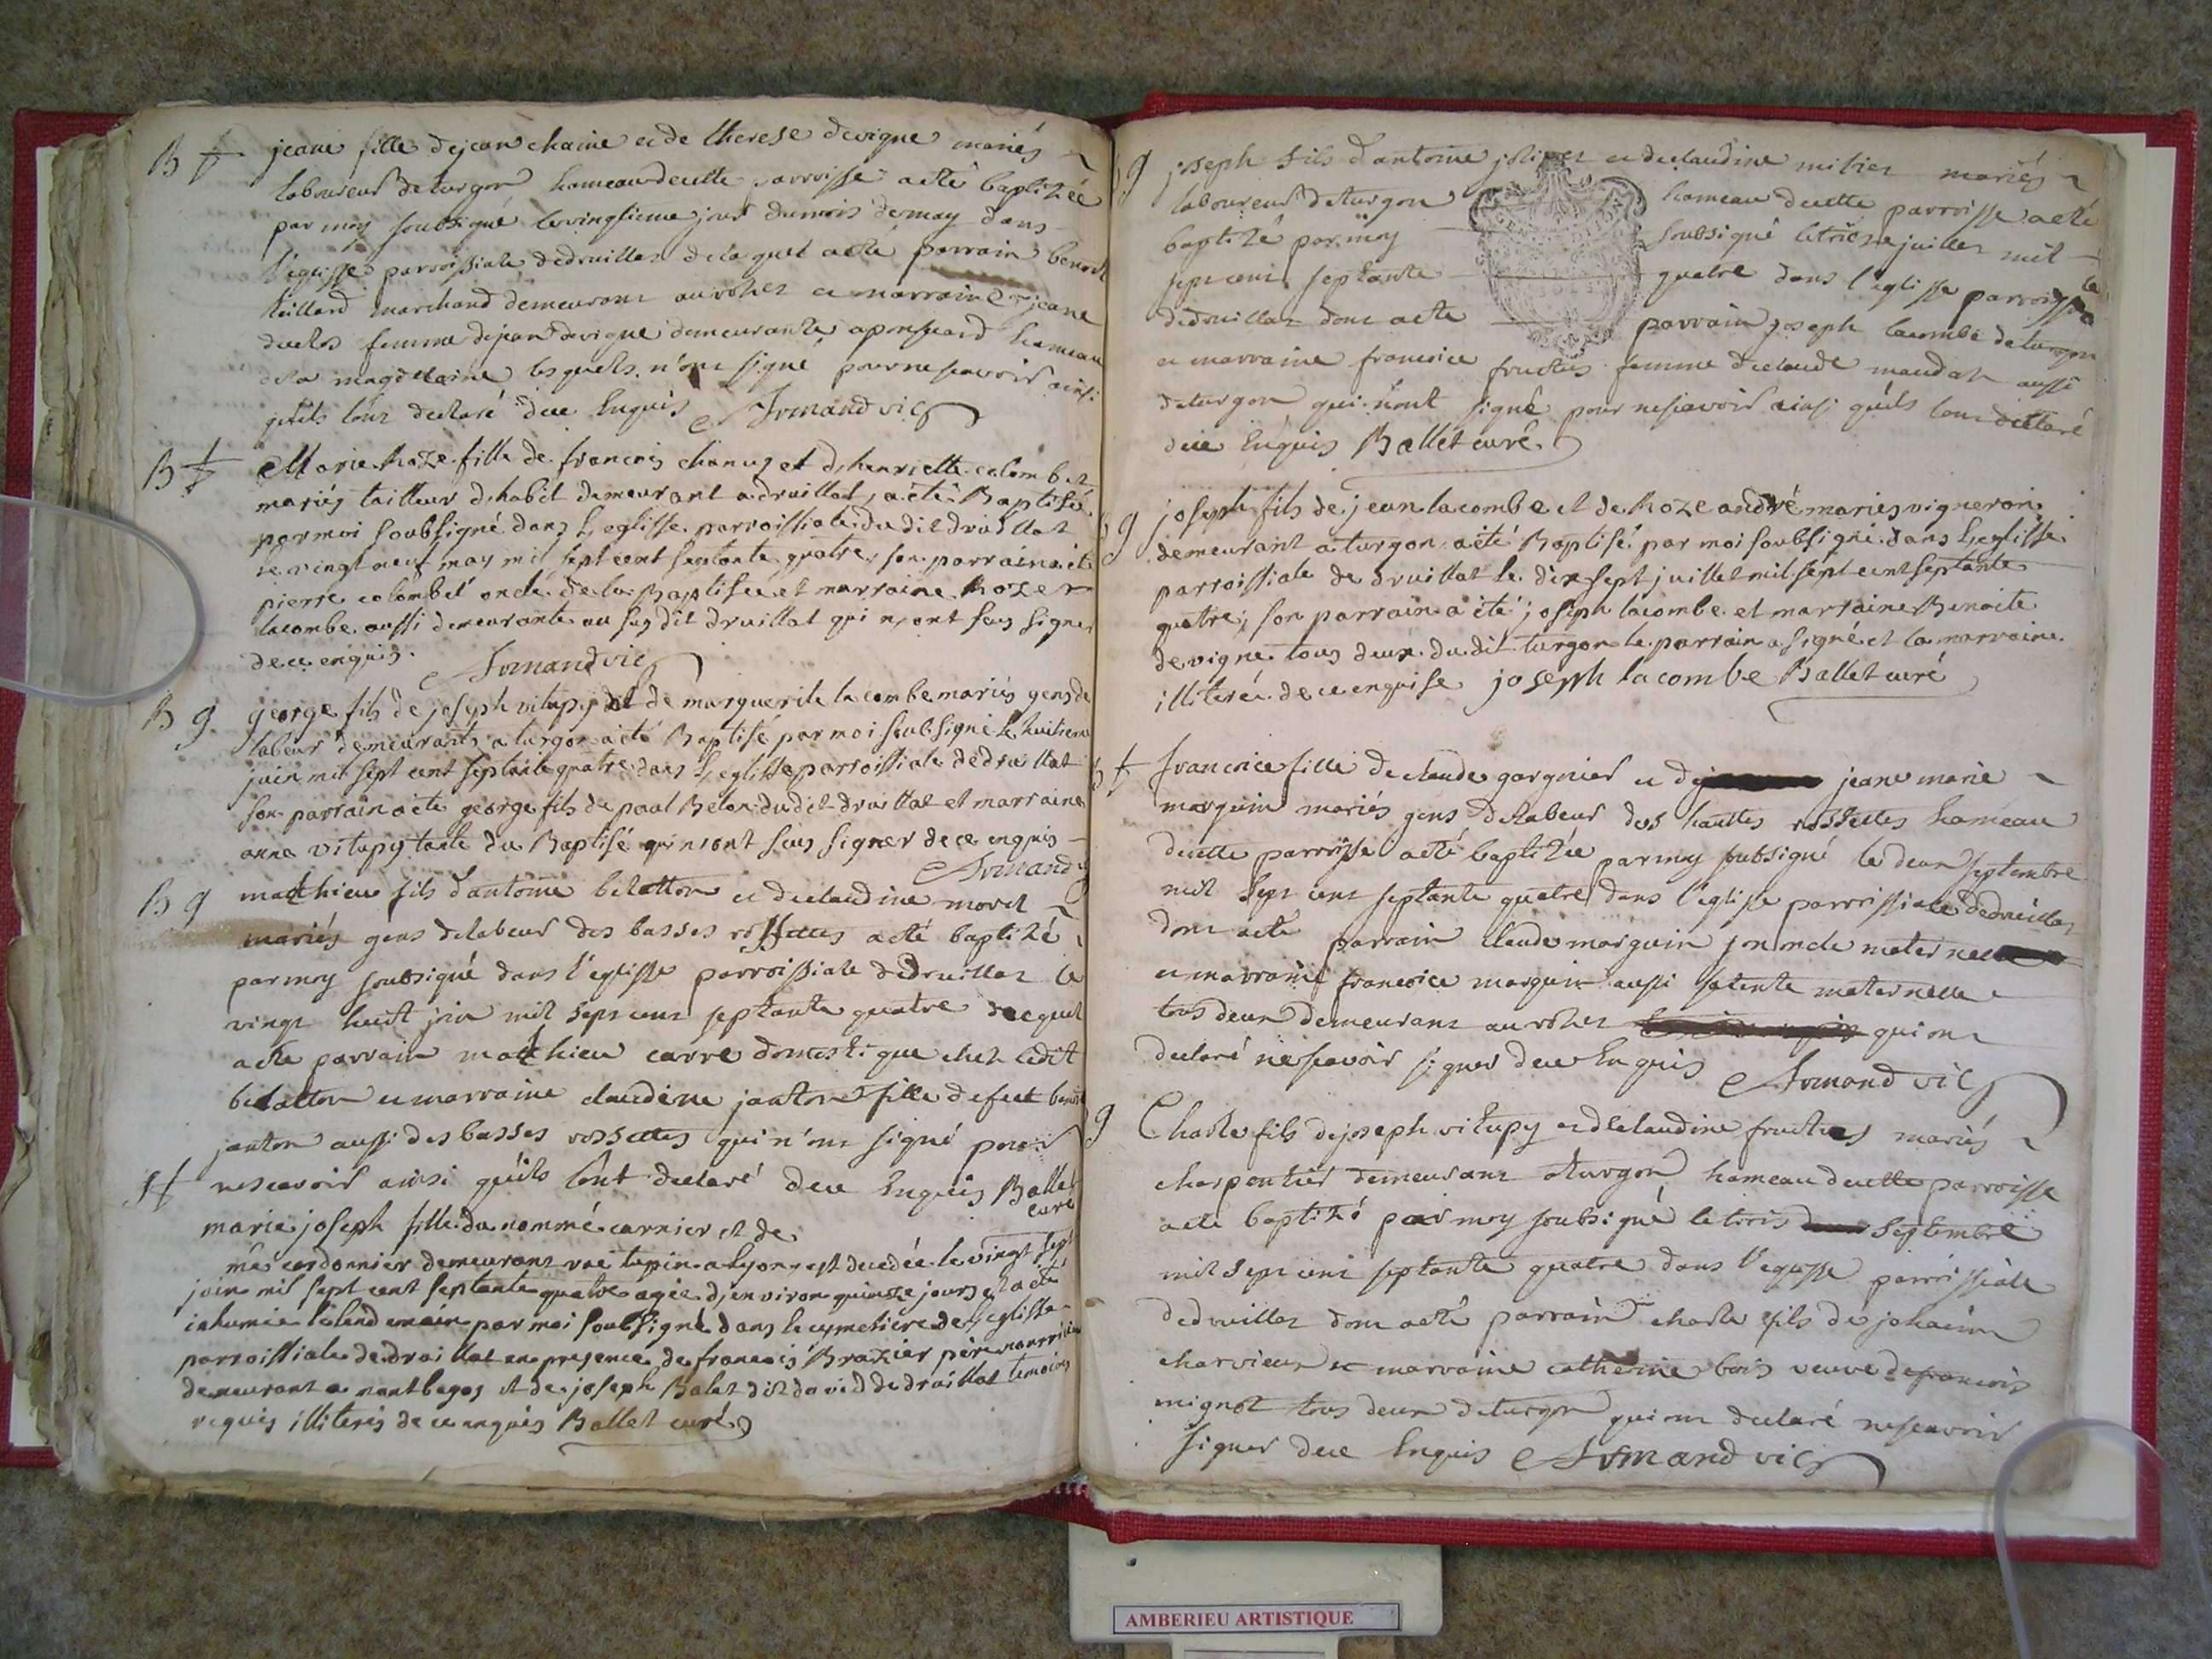 B f
jeane fille de jean chaine et de therese devigne mariés
laboureur de turgon hameau de cette parroisse a eté baptizée
par moy soubsigné le vingtieme jour du mois de may dans
l'eglisse parroissiale de druillat de laquel a eté parrain benoit
tuillard marchand demeurant au rohet et marraine jeane
duclos femme de jean devigne demeurante a hameau
de la magdelaine lesquels n'ont signé pour ne scavoir ainsi
qu'ils l'ont declaré de ce Enquis Armand vic
B f
Marie Roze fille de francois chanuz et d,henriette colombet
mariés tailleur d,habit demeurant a druillat, a été Baptisé
par moi soubsigné dans L,eglisse parroissiale du dit druillat
le vingt neuf may mil sept cent septante quatre, son parrain a été
pierre colombet oncle de la Baptisée et marraine Roze
lacombe aussi demeurante au susdit druillat qui n,ont seus signer
de ce enquis. Armand vic
B g
george fils de joseph vitupy et de marguerite la combe mariés gens de
labeur demeurants a turgon a eté Baptisé par moi soubsigné le huitieme
juin mil sept cent septante quatre dans L,eglisse parroissiale de druillat
son parrain a eté george fils de paul Belon du dit druillat et marraine
anne vitupy tante du Baptisé qui n'ont seus signer de ce enquis
Armand
B g
matthieu fils d'antoine belatton et de claudine moret
mariés gens de labeur des basses rossettes a eté baptizé
par moy soubsigné dans l'eglisse parroissiale de druillat le
vingt huit juin mil sept cent septante quatre duquel
a eté parrain matthieu carre domestique chez ledit
belatton et marraine claudine janton fille de feu benoit
janton aussi des basses rossettes qui n'ont signé pour
ne scavoir ainsi qu'ils l'ont declaré de ce Enquis Ballet
curé
S f
marie joseph fille du nommé carnier et de
me cordonnier demeurant rue tupin a lyon, est decedée le vingt sept
juin mil sept cent septante quatre agée d,environ quinze jours et a eté
inhumée le lendemain par moi soubsigné dans le cymetiere de L,eglisse
parroissiale de druillat en presence de francois Brazier père nourricier
demeurant a mont begos et de joseph Balet dit david de druillat temoins
requis illiterés de ce enquis Ballet curé
g
joseph fils d'antoine et de claudine mariés
laboureur de turgon hameau de cette parroisse a eté
baptizé par moy soubsigné le treize juillet mil
sept cent septante quatre dans l'eglisse parroissiale
de druillat dont a eté parrain joseph lacombe de turgon
et marraine francoise fructus femme de claude mandat aussi
de turgon qui n'ont signé pour ne scavoir ainsi qu'ils l'ont declaré
de ce Enquis Ballet curé.
g
joseph fils de jean lacombe et de Roze andré mariés vigneron
demeurant a turgon a eté Baptisé par moi soubsigné dans L,eglisse
parroissiale de druillat le dix sept juillet mil sept cent septante
quatre; son parrain a été joseph lacombe et marraine Benoite
devigne tous deux du dit turgon le parrain a signé et la marraine
illiterée de ce enquise joseph lacombe Ballet curé
f
francoise fille de claude gargnier et de jeane marie
marguin mariés gens de labeur des hauttes rossettes hameau
de cette parroisse a eté baptizée par moy soubsigné le deux septembre
mil sept cent septante quatre dans l'eglisse parroissiale de druillat
dont a eté parrain claude marguin son oncle maternel
et marraine francoise marguin aussi sa tente maternelle
tous deux demeurant au rohet qui ont
declaré ne scavoir signer de ce Enquis Armand vic
g
Charle fils de joseph vitupy et de claudine fructus mariés
charpentier demeurant a turgon hameau de cette parroisse
a eté baptizé par moy soubsigné le trois septembre
mil sept cent septante quatre dans l'eglisse parroissiale
de druillat dont a eté parrain charle fils de joachim
charvieux et marraine catherine bois veuve de francois
mignot tous deux de turgon qui ont declaré ne scavoir
signer de ce Enquis Armand vic
AMBERIEU ARTISTIQUE